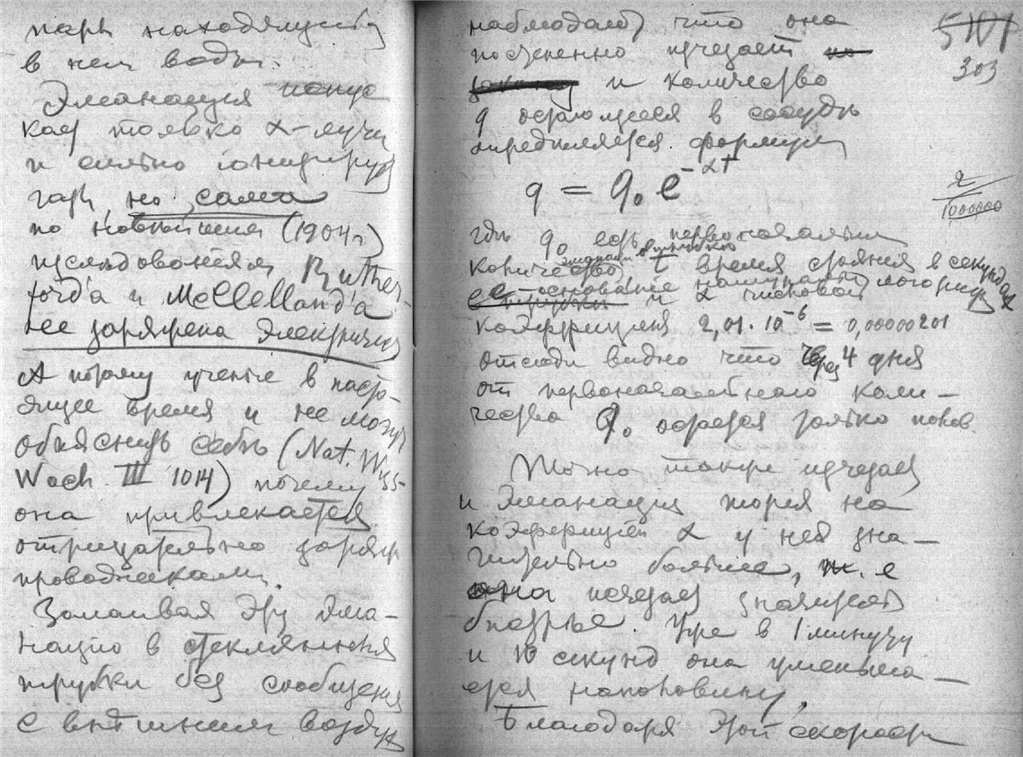 паръ находящуюся
в ней воды.
Эманация испус
кает только α-лучи
и сильно iонизируя
газъ, но сама
по новѣйшим (1904 г)
изслѣдованіям Ruther-
ford'a и McClelland'a
не заряжена электрич
А потому ученые в насто-
ящее время и не могут
объяснить себѣ (Nat. Wiss-
Woch III 1014) почему
она привлекается
отрицательно заряж
проводниками.
Запаивая эту эма-
націю в стеклянныя
трубки без сообщения
с внѣшним воздух
наблюдают что она
постепенно изчезает
и количество
q остающееся в сосудѣ
опредѣляется формулы
q = q₀ e^-αt
гдѣ q₀ есть первоначальн
количество эманации t время стояния в секундах
е основание натуральн логариф
и α числовой
коэффициент 2,01·10^-6 = 0,00000201
отсюда видно что через 4 дня
от первоначальнаго коли-
чества q₀ остается только полов.
Точно также изчезает
и эманация тория но
коэффициент α у ней зна-
чительно больше, т. е
она изчезает значительн
быстрѣе. Уже в 1 минуту
и 10 секунд она уменьша-
ется наполовину,
Благодаря этой скорости
303
2/1000000